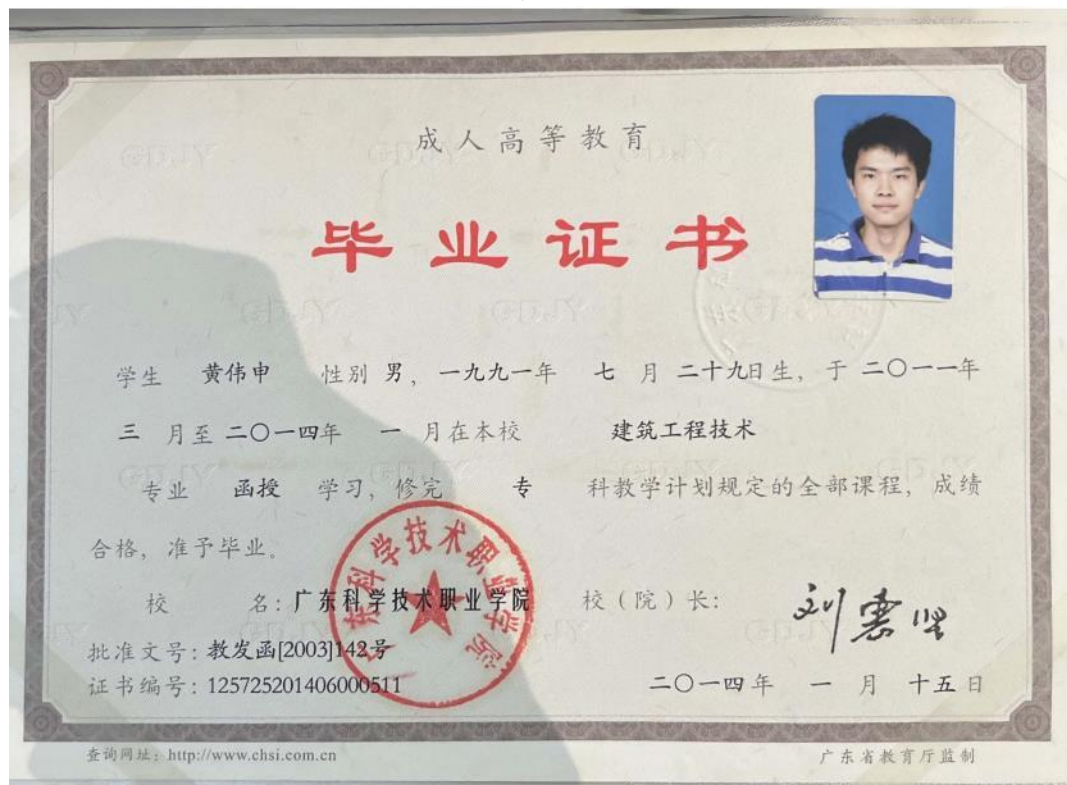 成人高等教育
毕业证书
学生 黄伟申 性别 男，一九九一年 七 月 二十九日生，于 二〇一一年
三 月至 二〇一四年 一 月在本校 建筑工程技术
专业 函授 学习，修完 专 科教学计划规定的全部课程，成绩
合格，准予毕业。
校 名：广东科学技术职业学院 校（院）长：刘惠坚
广东科学技术职业学院
批准文号：教发函[2003]142号
证书编号：125725201406000511 二〇一四年 一 月 十五日
查询网址：http://www.chsi.com.cn 广东省教育厅监制